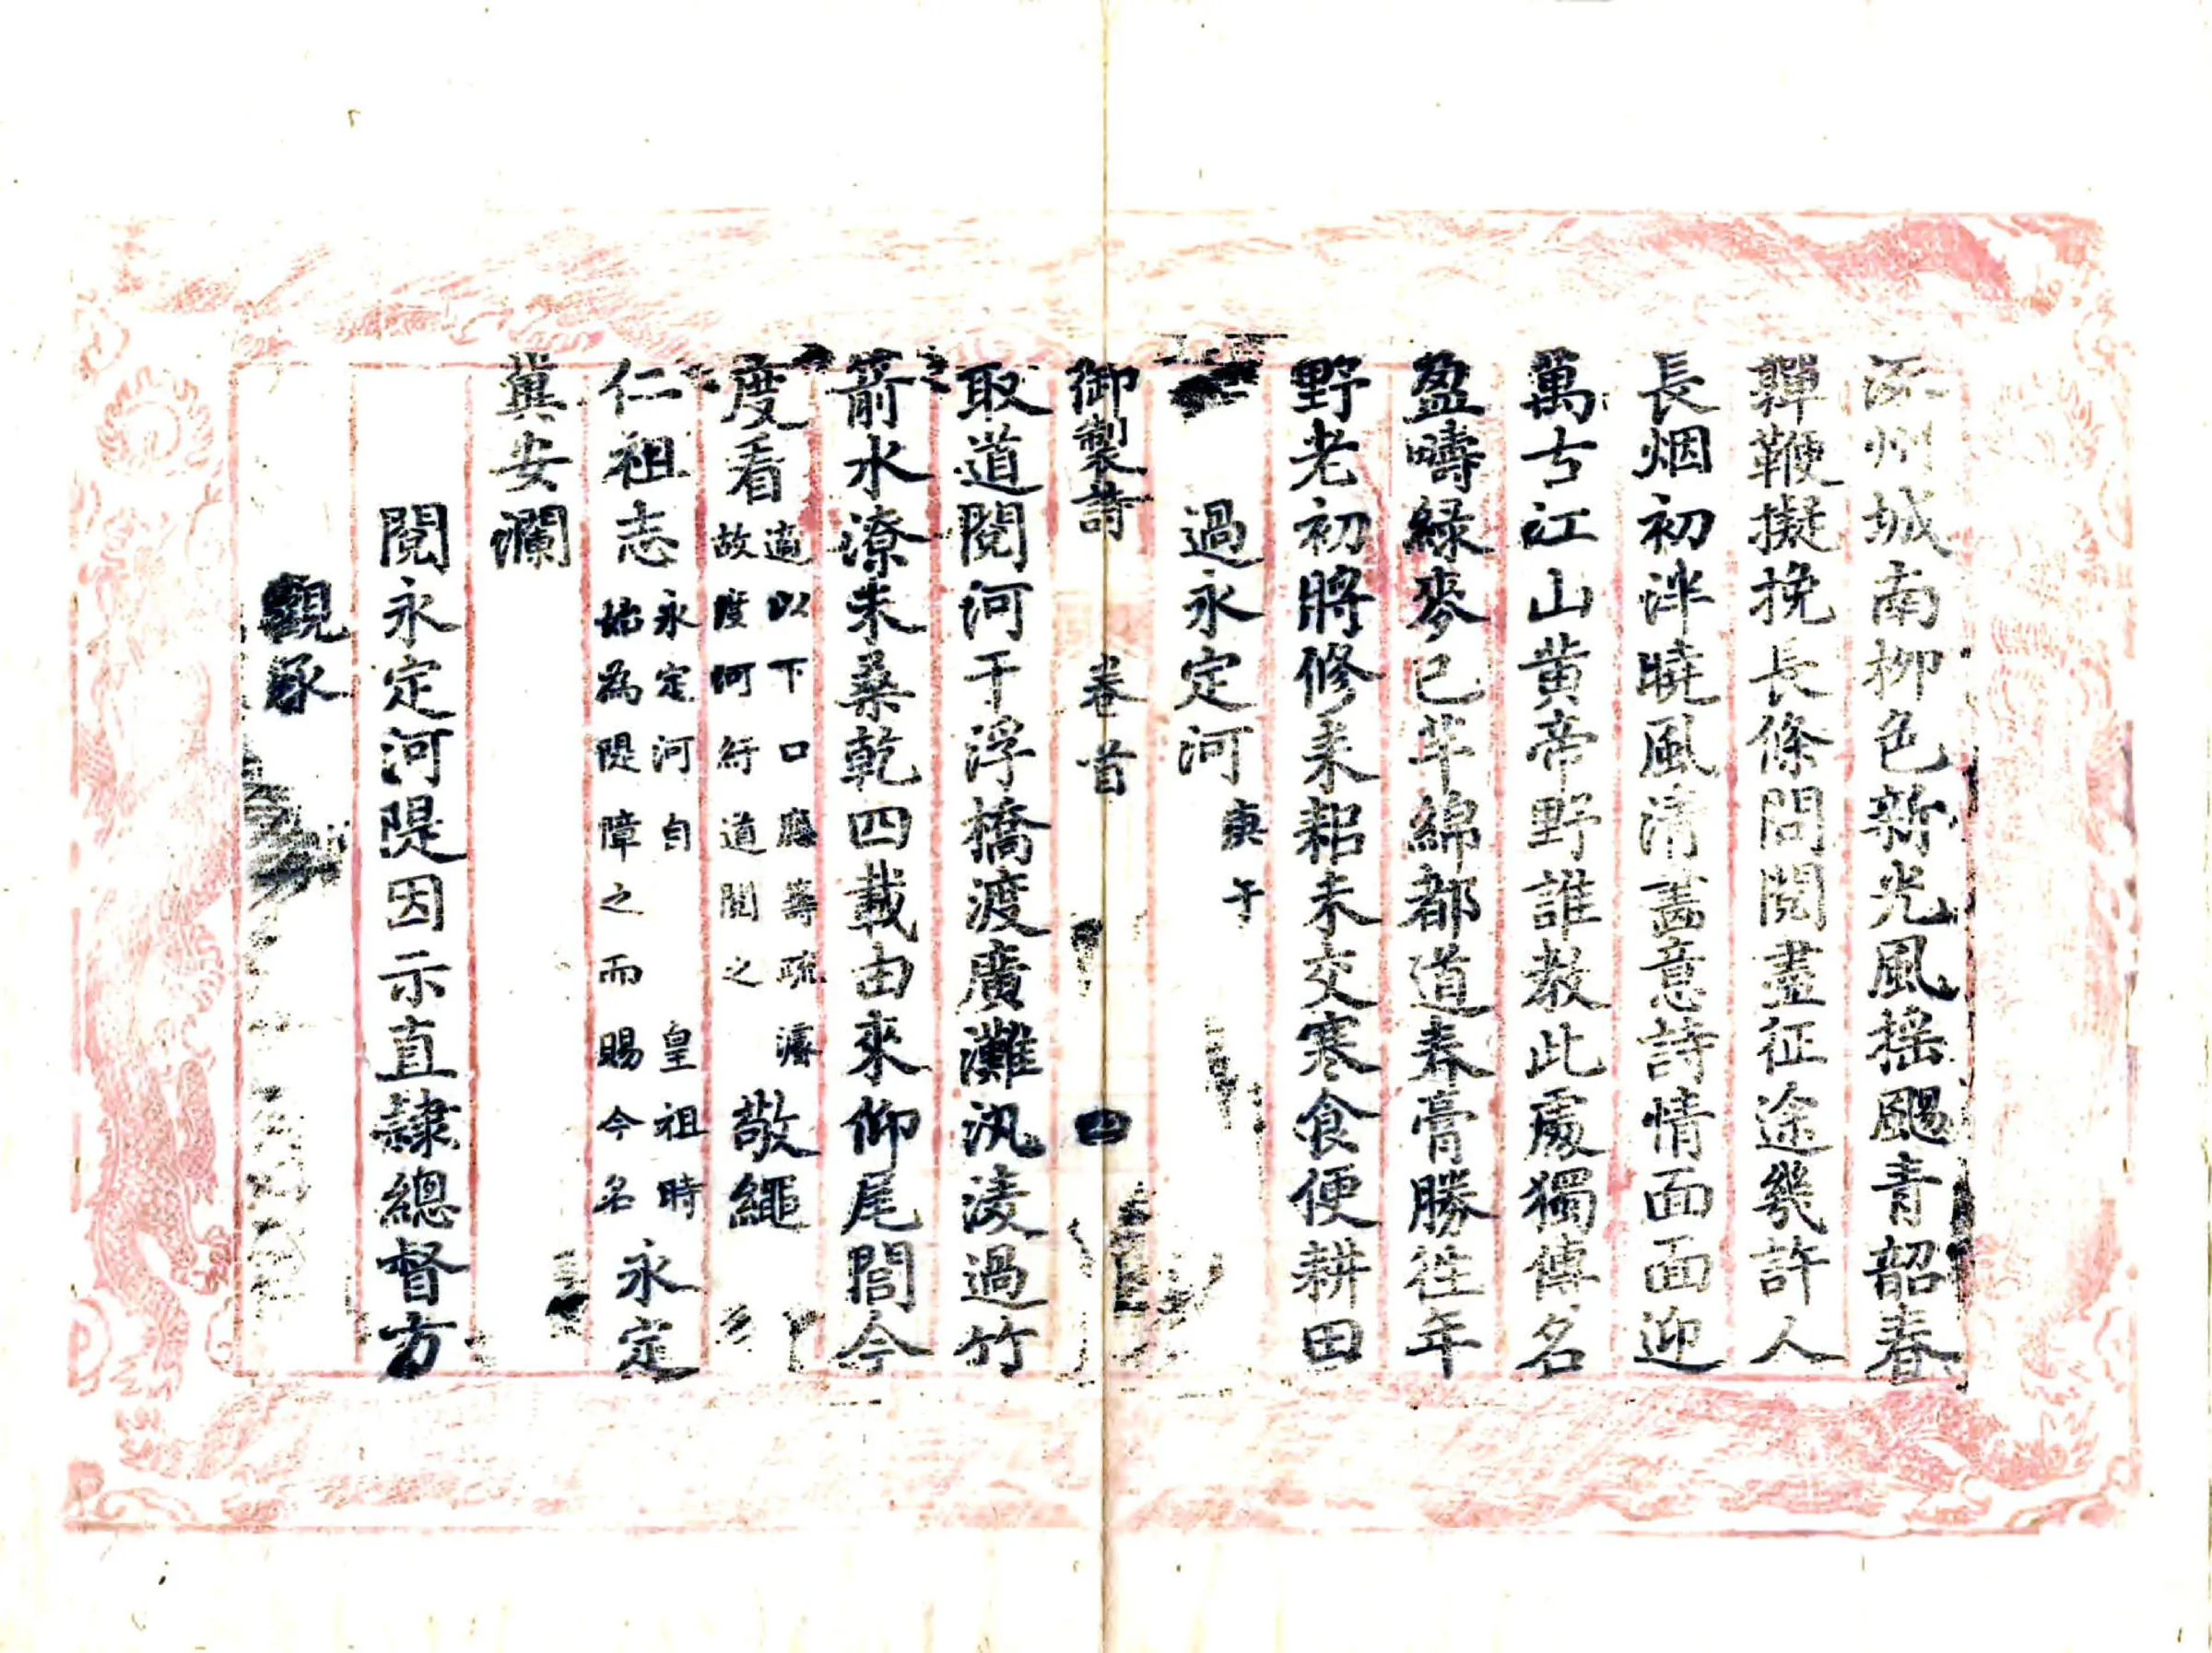 涿州城南柳色新光風搖颺青韶春
嚲鞭擬挽長條問閱盡征途幾許人
長烟初泮曉風清畵意詩情面面迎
萬古江山黄帝野誰教此處獨傳名
盈疇緑麥已芊綿都道春膏勝徃年
野老初將修耒耜未交寒食便耕田
過永定河庚午
御製詩 卷首 四
取道閱河干浮橋渡廣灘汛凌過竹
箭水潦未桑乾四載由來仰尾閭今
度看適以下口應籌疏濬故度河紆道閲之敬繩
仁祖志永定河自 皇祖時始為隄障之而賜今名永定
冀安瀾
閱永定河隄因示直隷總督方
觀承